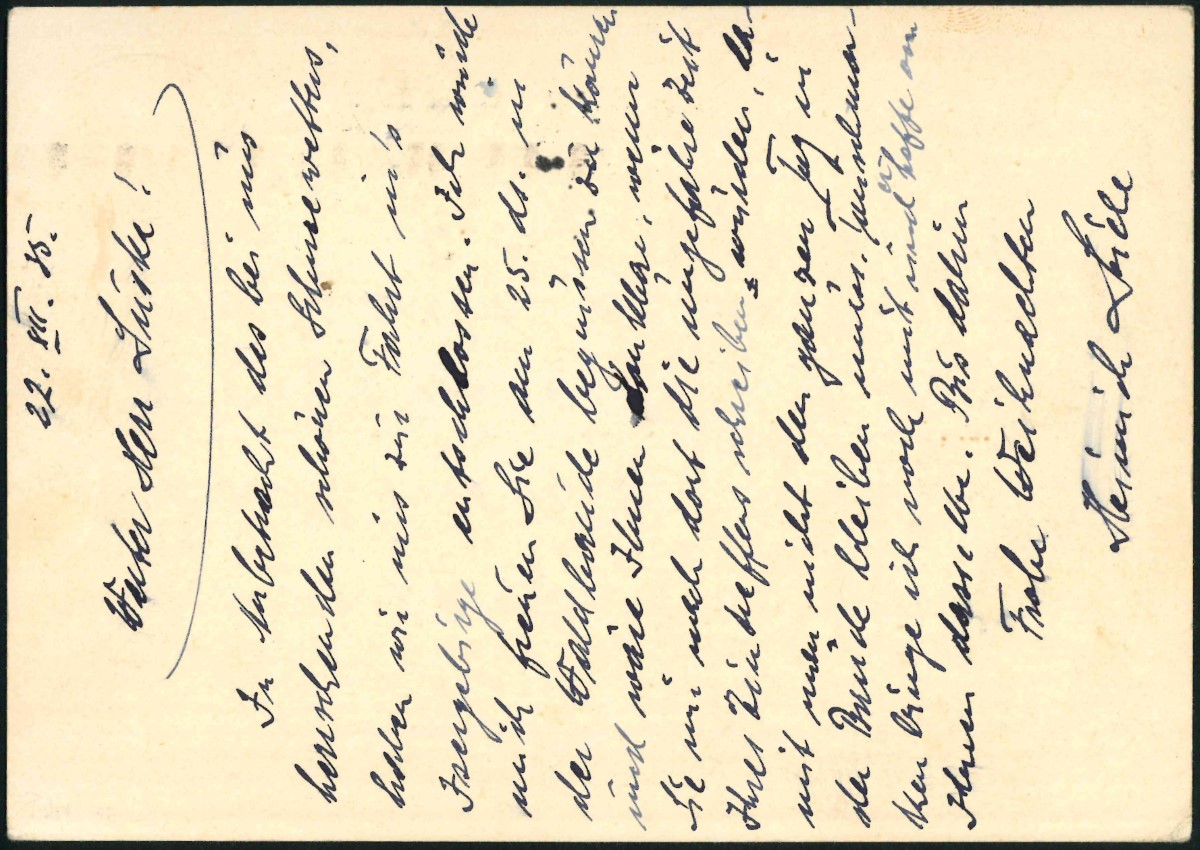 22. XII. 35.
Werter Herr Luska!
In Anbetracht des bei uns
herrschenden schönen Schneewetters,
haben wir uns zur Fahrt in's
Isergebirge entschlossen. Ich würde
mich freuen Sie am 25. ds. in
der Wahlbaude begrüssen zu können
und wäre Ihnen dankbar, wenn
Sie mir nach dort die ungefähre Zeit
Ihres Eintreffens schreiben würden, da-
mit man nicht den ganzen Tag in
der Baude bleiben muss. Manchmar-
ken bringe ich noch mit und hoffe von
Ihnen dasselbe. Bis dahin
Frohe Weihnachten
Heinrich